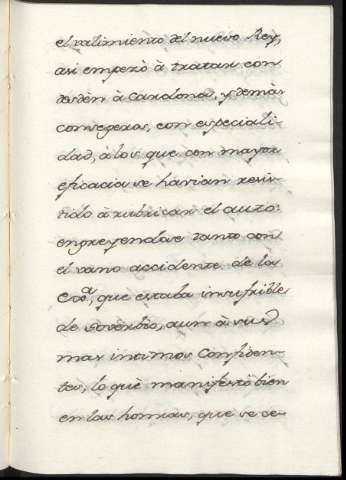 el valimiento del nuevo Rey,
asi empezò à tratar con
desdèn à Cardona, y demàs
consegeros, con especiali-
dad, à los que con mayor
eficacia se havian resis-
tido à rubricar el auto:
engreyendose tanto con
el vano accidente de los
que estaba insufrible
de sovèrbio, aun à sus
mas intimos Confiden-
tes, lo què manifestò bien
en las honrras, que se ce-